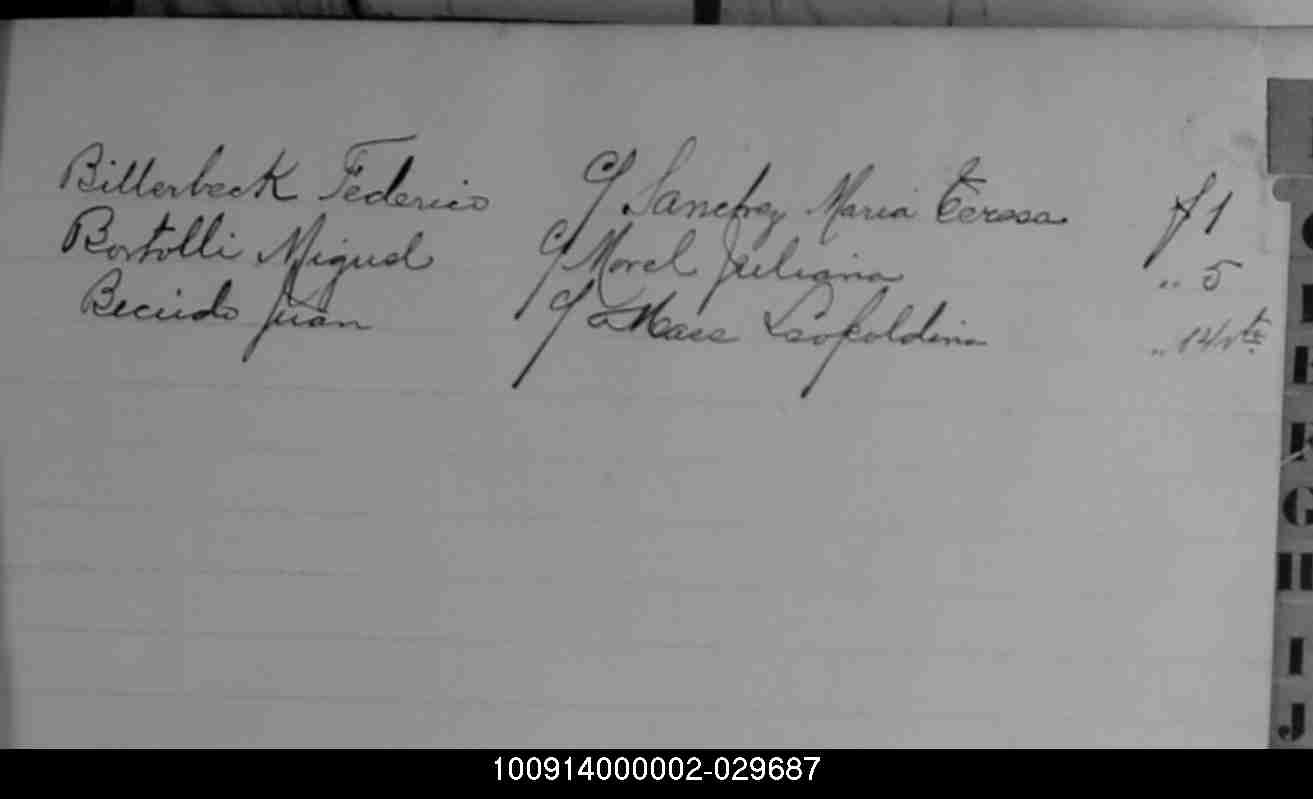 Billerbeck Federico c/ Sanchez Maria Teresa f 1
Bortolli Miguel c/ Morel Juliana " 5
Juan c/ Leopoldina " 14 vta
G
H
I
J
100914000002-029687